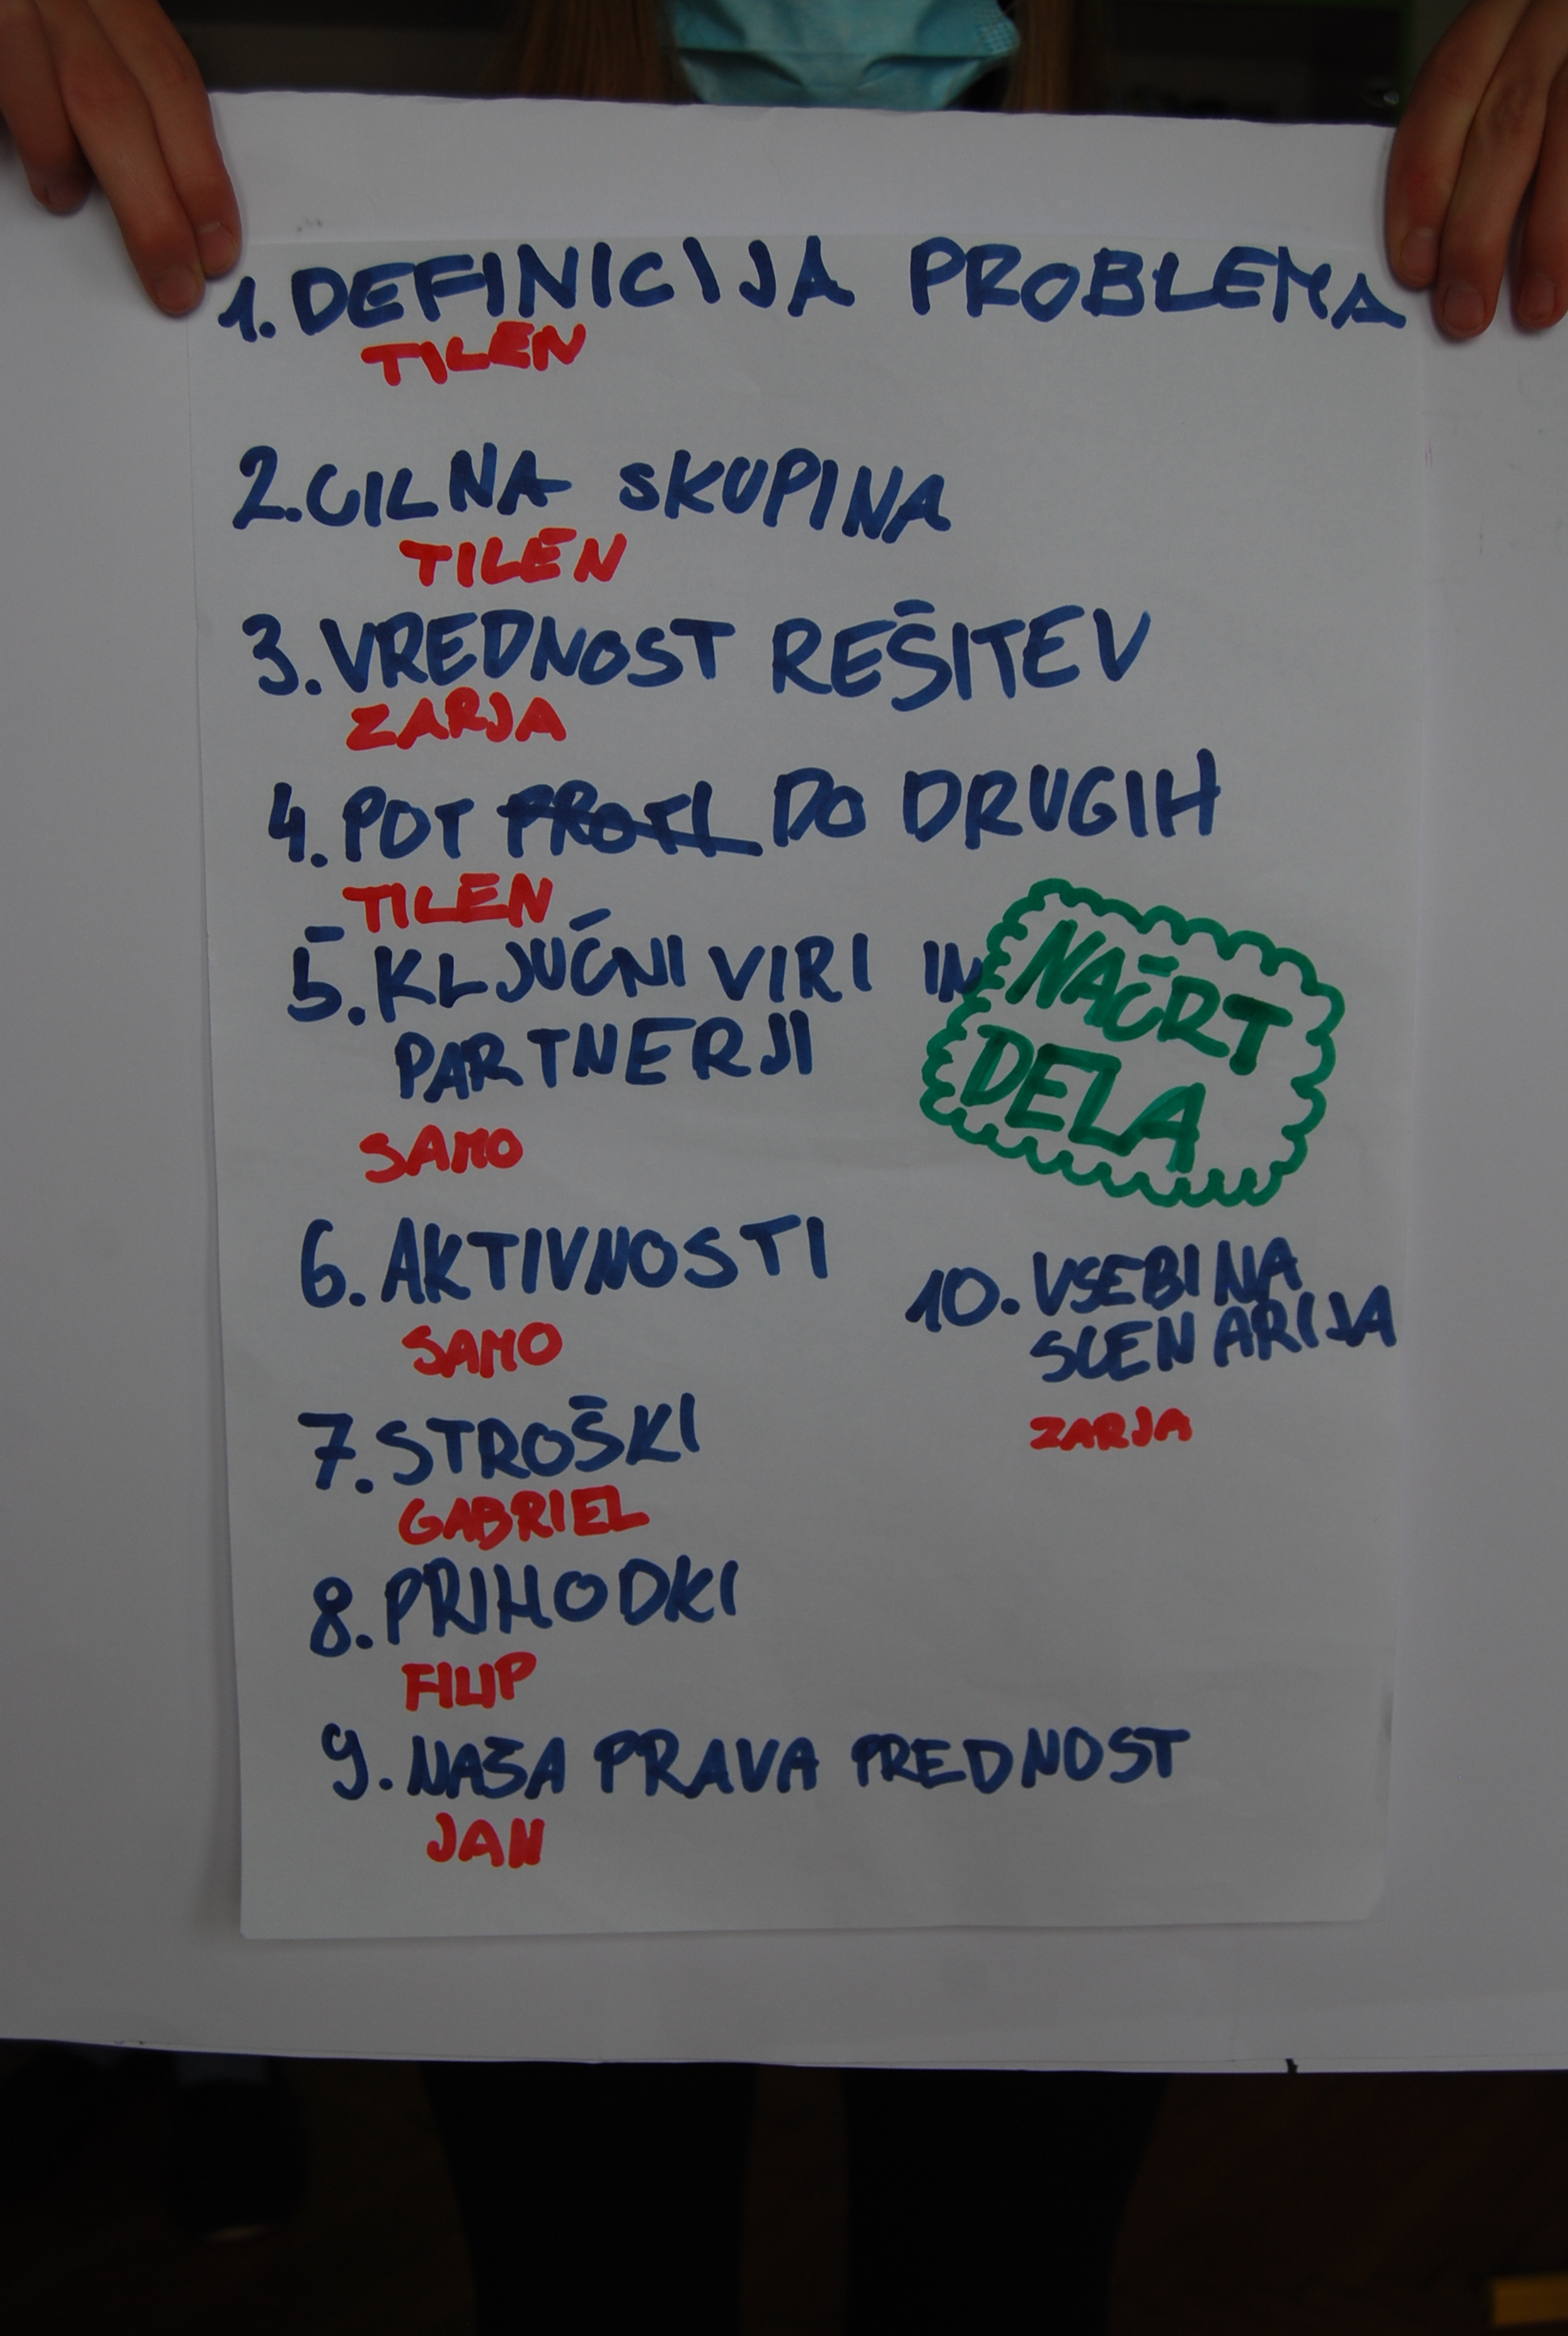 1. DEFINICIJA PROBLEMA
TILEN
2. CILNA SKUPINA
TILEN
3. VREDNOST REŠITEV
ZARJA
4. POT PROTI DO DRUGIH
TILEN
5. KLJUČNI VIRI IN
PARTNERJI
SAMO
6. AKTIVNOSTI
SAMO
7. STROŠKI
GABRIEL
8. PRIHODKI
FILIP
9. NAŠA PRAVA PREDNOST
JAN
NAČRT
DELA
10. VSEBINA
SCENARIJA
ZARJA